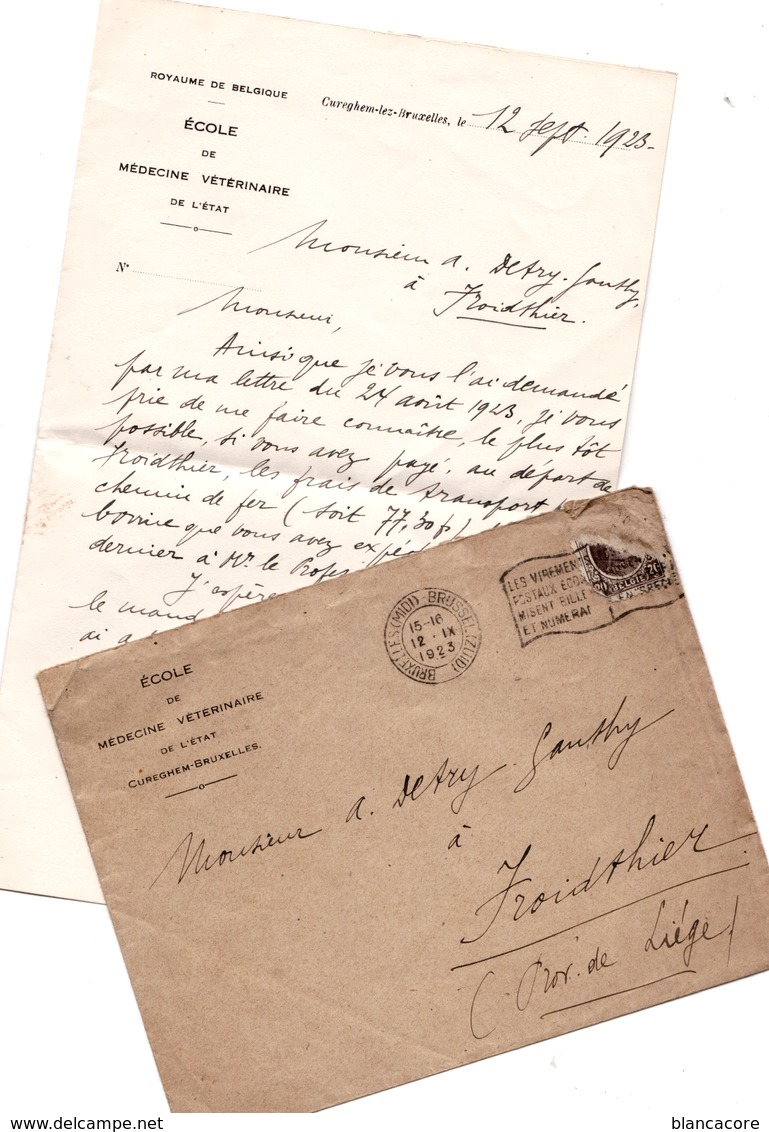 ROYAUME DE BELGIQUE
ÉCOLE
DE
MÉDECINE VÉTÉRINAIRE
DE L'ÉTAT
Cureghem-lez-Bruxelles, le 12 Sept. 1923-
N°
Monsieur A. Detry-Gauthy,
à Froidthier.
Monsieur,
Ainsi que je vous l'ai demandé
par ma lettre du 24 août 1923, je vous
prie de me faire connaître, le plus tôt
possible, si vous avez payé, au départ de
Froidthier, les frais de transport
chemin de fer (soit 77,30 fr)
que vous avez
dernier à Mr. le
J'espère
le mand
ai a
ÉCOLE
DE
MÉDECINE VÉTÉRINAIRE
DE L'ÉTAT
CUREGHEM-BRUXELLES.
BRUXELLES (MIDI) BRUSSEL (ZUID)
15-16
12·IX
1923
LES VIREMENTS
POSTAUX ÉCONO
MISENT BILLE
ET NUMÉRAI
EN SPECIE
Monsieur A. Detry-Gauthy
à
Froidthier.
(Prov. de Liége)
delcampe.net
blancacore